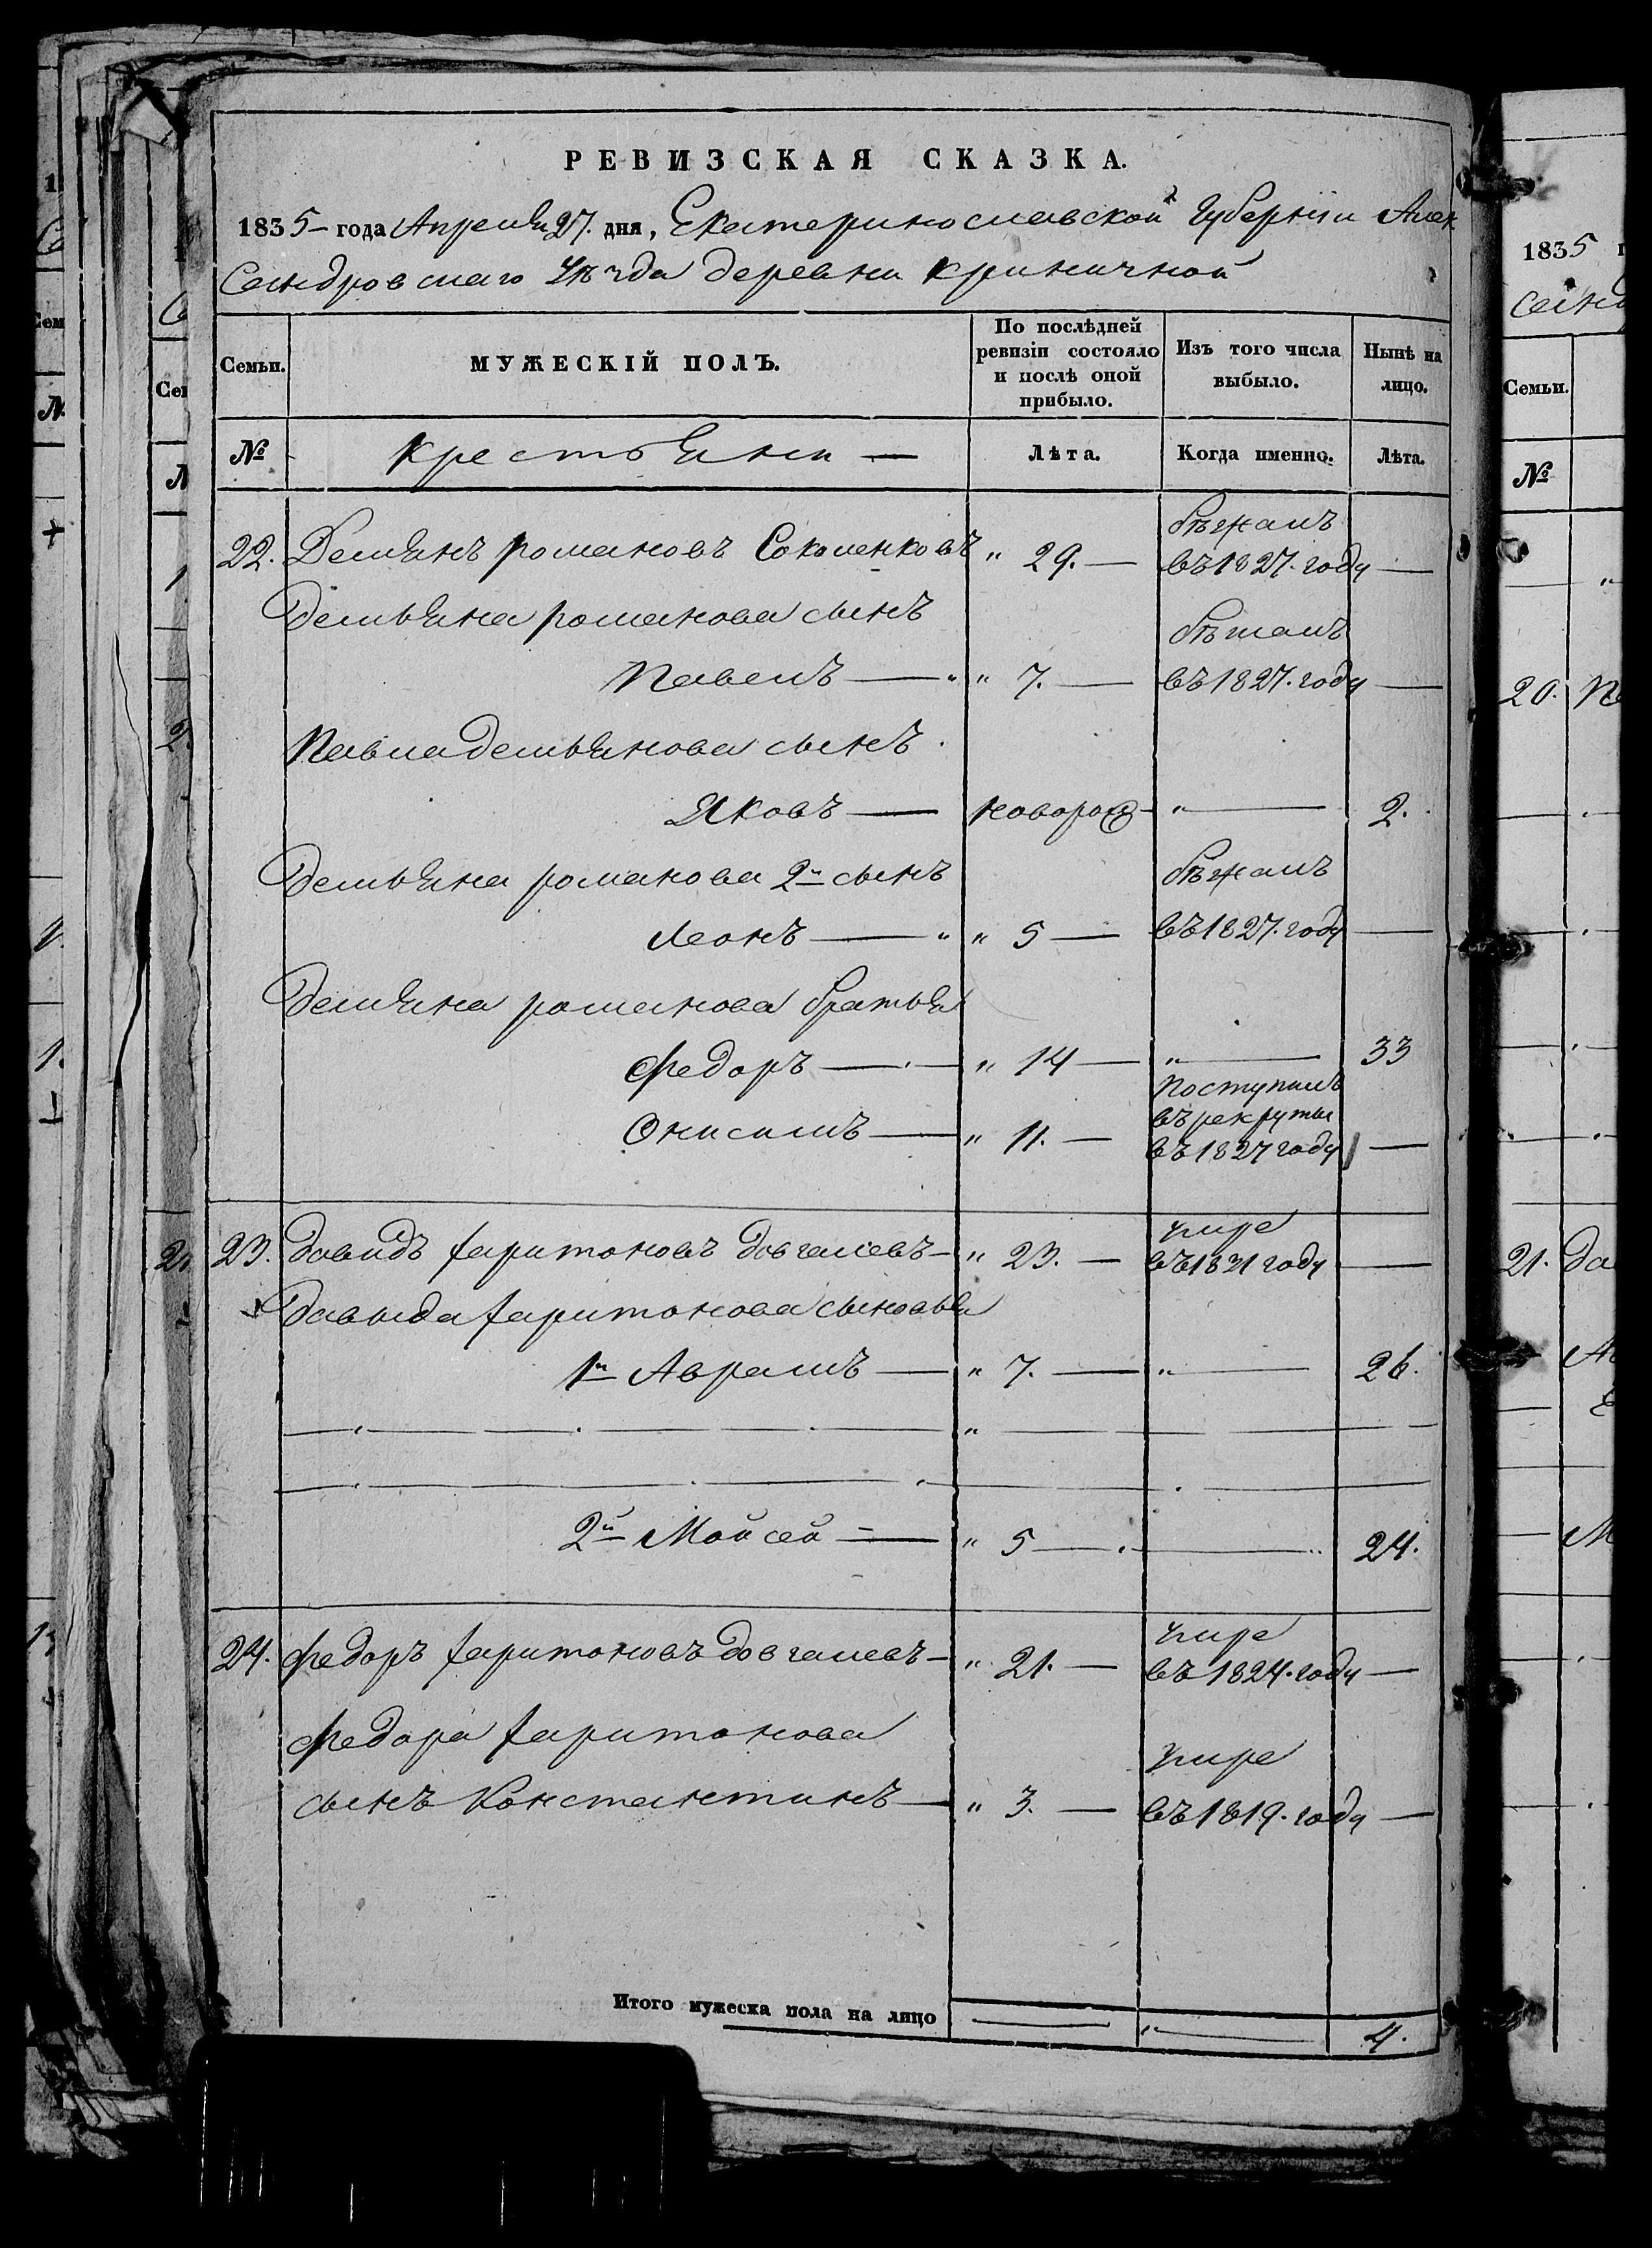 РЕВИЗСКАЯ СКАЗКА.
1835 года Апреля 27. дня, Екатеринославской Губернiи Алек
сендровскаго Уѣзда деревни криничной
Семьи. МУЖЕСКIЙ ПОЛЪ. По послѣдней ревизiи состояло и послѣ оной прибыло. Изъ того числа выбыло. Нынѣ на лицо.
№ крестьяни — Лѣта. Когда именно. Лѣта.
бѣжалъ
22. Демянъ романовъ Соколенковъ " 29. — въ 1827. году —
Демьяна романова сынъ
бѣжалъ
Павелъ — " 7. — въ 1827. году —
Павла демьянова сынъ
Яковъ — новорож " — 2.
Демьяна романова 2й сынъ бѣжалъ
Леонъ — " 5 — въ 1827. году —
Демяна романова братья
Федоръ — " 14 — " — 33
поступилъ
въ рекруты
Онисимъ — " 11. — въ 1827 году —
умре
23. Давидъ харитоновъ довгалевъ — " 23. — въ 1831 году —
Давыда харитонова сыновья
1й Аврамъ — " 7. — " — 26.
2й Мойсей — " 5 — 24.
умре
24. Федоръ харитоновъ довгалевъ — " 21. — въ 1824. году —
Федора харитонова
умре
сынъ Константинъ — " 3. — въ 1819. году —
Итого мужеска пола на лицо — " — 4.
1835
20.
21. Да